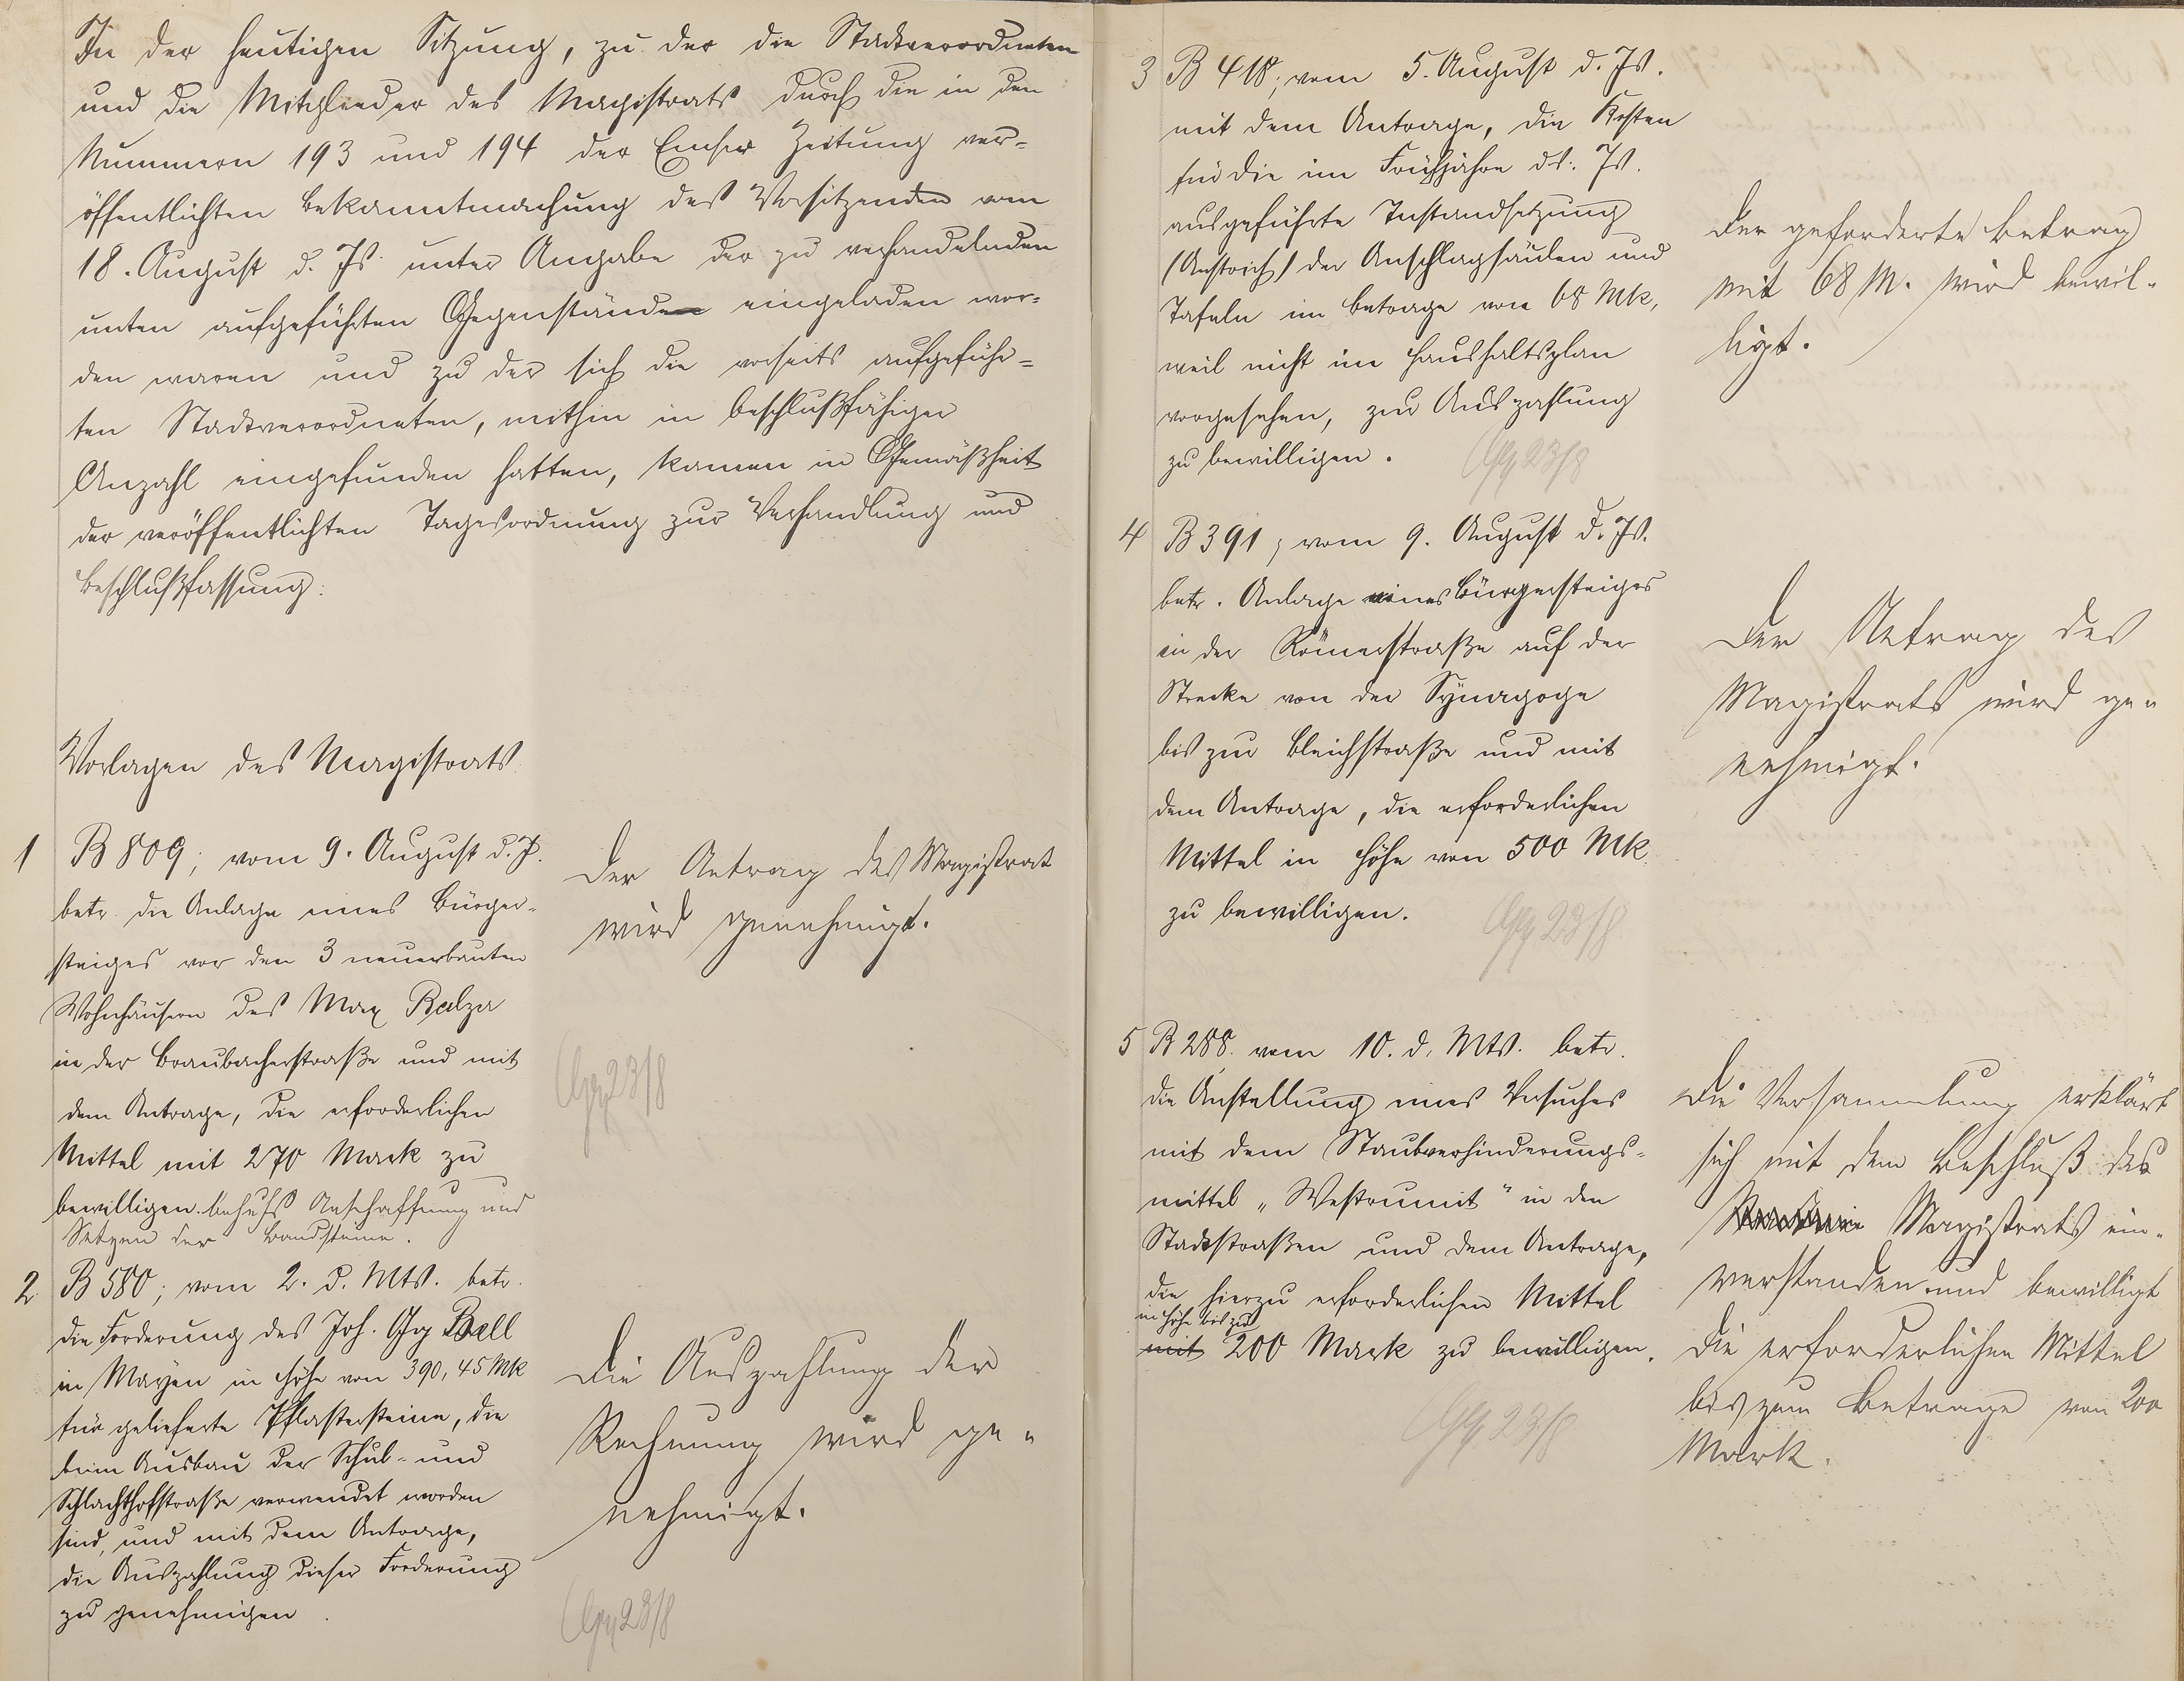 In der heutigen Sitzung, zu der die Stadtverordneten
und die Mitglieder des Magistrats durch die in den
Nummern 193 und 194 der Emser Zeitung ver-
öffentlichten Bekanntmachung des Vorsitzenden vom
18. August d. Js. unter Angabe der zu verhandelnden
unten aufgeführten Gegenstände eingeladen wor-
den waren und zu der sich die vorseits aufgeführ-
ten Stadtverordneten, mithin in beschlußfähiger
Anzahl eingefunden hatten, kamen in Gemäßheit
der veröffentlichten Tagesordnung zur Verhandlung und
Beschlußfassung:
Vorlagen des Magistrats.
1 B 809; vom 9. August d. J.
betr. die Anlage eines Bürger-
steiges vor den 3 neuerbauten
Wohnhäusern des Max Balzer
in der Braubacherstraße und mit
dem Antrage, die erforderlichen
Mittel mit 270 Mark zu
bewilligen behufs Anschaffung und
Setzen der Bandsteine.
Der Antrag des Magistrat
wird genehmigt.
23/8
2 B 580; vom 2. d. Mts. betr.
die Forderung des Joh. Gg Bell
in Mayen in Höhe von 390,45 Mk
für gelieferte Pflastersteine, die
beim Ausbau der Schul- und
Schlachthofstraße verwendet worden
sind, und mit dem Antrage,
die Auszahlung dieser Forderung
zu genehmigen.
Die Auszahlung der
Rechnung wird ge-
nehmigt.
23/8
3 B 418; vom 5. August d. Js.
mit dem Antrage, die Kosten
für die im Frühjahre ds. Js.
ausgeführte Instandsetzung
(Anstrich) der Anschlagsäulen und
Tafeln im Betrage von 68 Mk,
weil nicht im Haushaltsplan
vorgesehen, zur Auszahlung
zu bewilligen.
23/8
Der geforderte Betrag
mit 68 M. wird bewil-
ligt.
4 B 391; vom 9. August d. Js.
betr. Anlage eines Bürgersteiges
in der Römerstraße auf der
Strecke von der Synagoge
bis zur Bleichstraße und mit
dem Antrage, die erforderlichen
Mittel in Höhe von 500 Mk.
zu bewilligen.
23/8
Der Antrag des
Magistrats wird ge-
nehmigt.
5 B 288. vom 10. d. Mts. betr.
die Anstellung eines Versuches
mit dem Staubverhinderungs-
mittel „Westrumit" in den
Stadtstraßen und dem Antrage,
die hierzu erforderlichen Mittel
in Höhe bis zu
mit 200 Mark zu bewilligen.
23/8
Die Versammlung erklärt
sich mit dem Beschluß des
Magistrats ein-
verstanden und bewilligt
die erforderlichen Mittel
bis zum Betrage von 200
Mark.